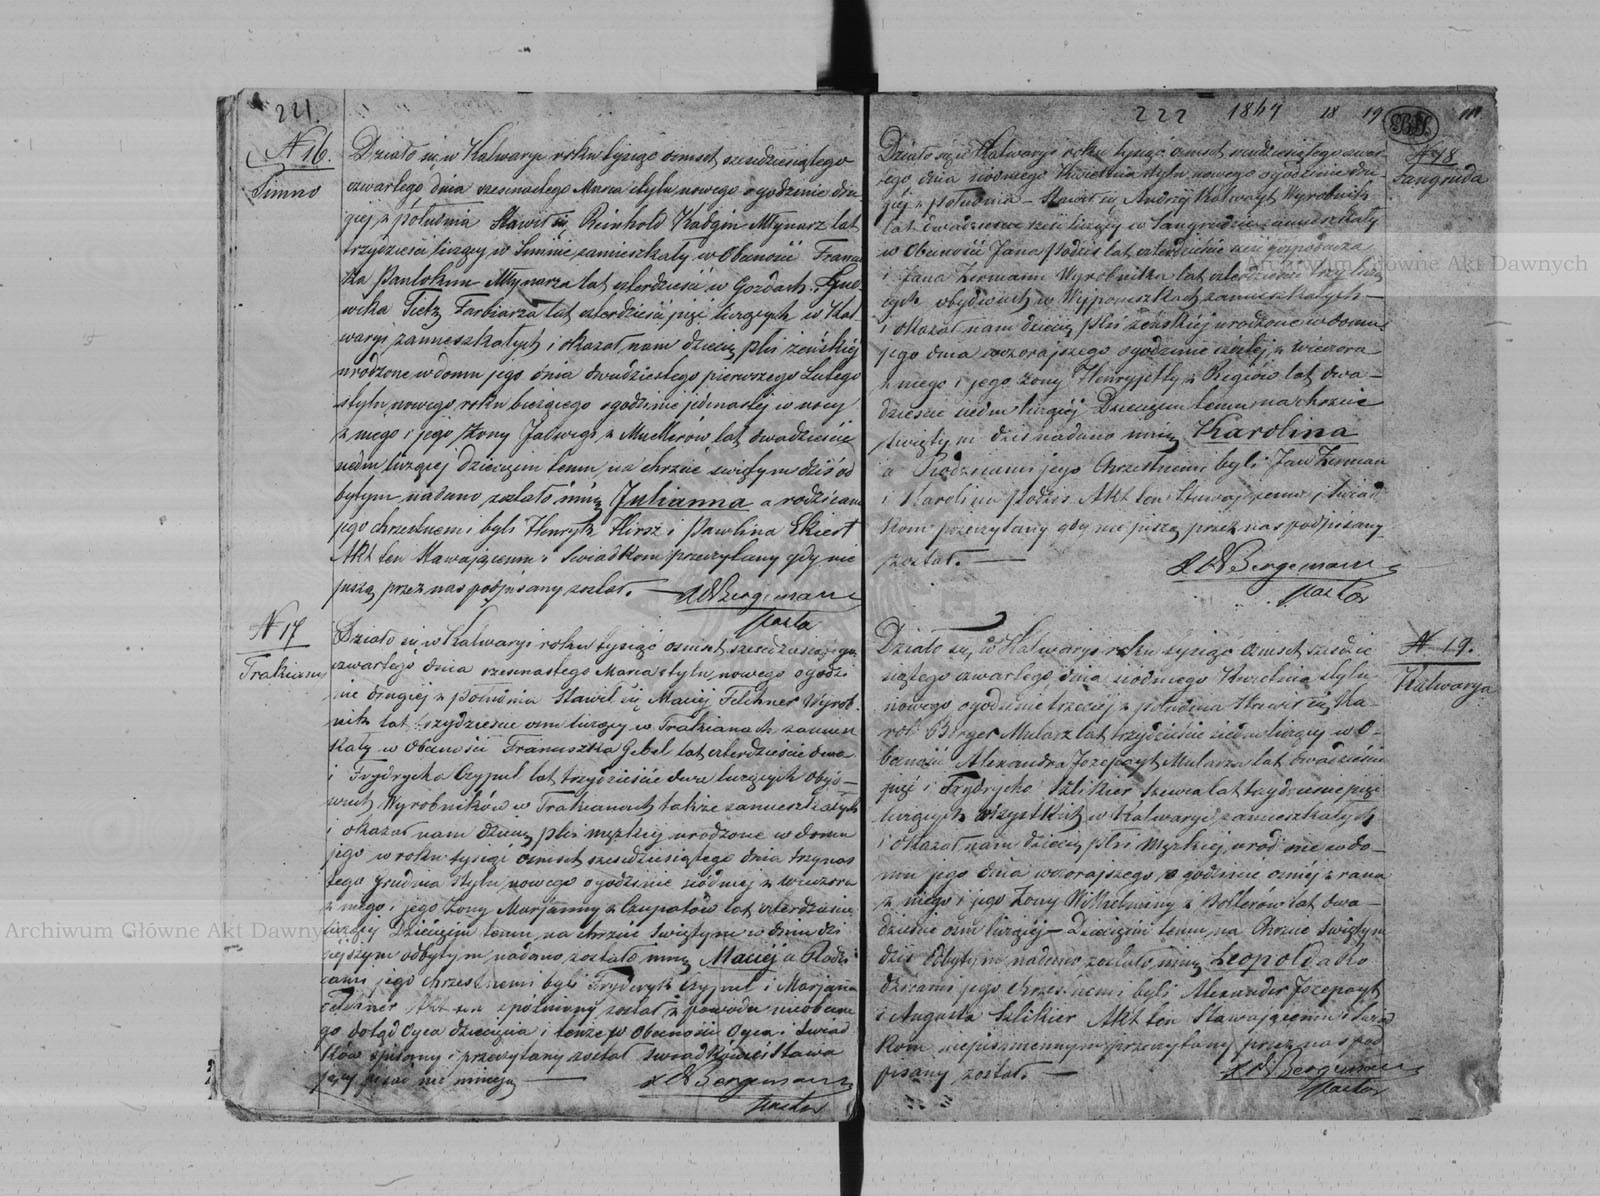 221.
N 16.
Simno
Działo się w Kalwaryi roku tysiąc ośmset sześdziesiątego
czwartego dnia szesnastego Marca stylu nowego o godzinie dru
giej z południa Stawił się Reinhold Kadgin Młynarz lat
trzydzieści liczący w Simnie zamieszkały w Obecności Franci
szka Młynarza lat czterdzieści w Gozdach
wika Tietz Farbiarza lat czterdzieści pięć liczących w Kal
waryi zamieszkałych i okazał nam dziecię płci żeńskiej
urodzone w domu jego dnia dwudziestego pierwszego Lutego
stylu nowego roku bieżącego o godzinie jedenastej w nocy
z niego i jego żony Jadwigi z Mullerów lat dwadzieścia
siedm liczącej Dziecięciu temu na chrzcie świętym dziś od
bytym nadano zostało imię Julianna a rodzicami
jego chrzestnemi byli Henryk Hirsz i Paulina Ekiert
Akt ten Stawającemu i Świadkom przeczytany gdy nie
piszą przez nas podpisany został.
Bergemann
Pastor
N 17
Trakiany
Działo się w Kalwaryi roku tysiąc ośmset sześdziesiątego
czwartego dnia szesnastego Marca stylu nowego o godzi
nie drugiej z południa Stawił się Maciej Felchner Wyrob
nik lat trzydzieści ośm liczący w Trakianach zamiesz
kały w Obecności Franciszka Gebel lat czterdzieści dwa
i Frydrycha Czypul lat trzydzieści dwa liczących Oby
dwuch Wyrobników w Trakianach także zamieszkałych
i okazał nam dziecię płci męzkiej urodzone w domu
jego w roku tysiąc ośmset sześdziesiątego dnia trzynas
tego Grudnia stylu nowego o godzinie siódmej z wieczora
z niego i jego żony Marjanny z Czupatów lat czterdzieście
liczącej Dziecięciu temu na chrzcie świętym w dniu dzi
siejszym odbytym nadano zostało imię Maciej a Rodzi
cami jego chrzestnemi byli Frydryk Czypul i Marjana
Felchner Akt ten spóźniony został z powodu nieobecne
go dotąd Ojca dziecięcia i tenże w Obecności Ojca i Świad
ków spisany i przeczytany został Świadkowie i Stawa
jący pisać nie umieją
Bergemann
Pastor
222 1864 18 19
N 18
Sangruda
Działo się w Kalwaryi roku tysiąc ośmset sześdziesiątego czwar
tego dnia siódmego Kwietnia stylu nowego o godzinie dru
giej z południa Stawił się Andrzej Kalwayt Wyrobnik
lat dwadzieścia sześć liczący w Sangrudzie zamieszkały
w Obecności Jana Podzis lat czterdzieście sześć gospodarza
i Jana Zermann Wyrobnika lat czterdzieści trzy licz
ących obydwuch w Wyponiszkach zamieszkałych
i okazał nam dziecię płci żeńskiej urodzone w domu
jego dnia wczorajszego o godzinie szóstej z wieczora
z niego i jego żony Henryjetty z Regiów lat dwa
dzieścia siedm liczącej Dziecięciu temu na chrzcie
świętym dziś nadano imię Karolina
a Rodzicami jego Chrzestnemi byli Jan Zerman
i Karolina Podzis Akt ten Stawającemu i Świad
kom przeczytany gdy nie piszą przez nas podpisany
został.
Bergemann
Pastor
N 19.
Kalwarya
Działo się w Kalwaryi roku tysiąc ośmset sześdzie
siątego czwartego dnia siódmego Kwietnia stylu
nowego o godzinie trzeciej z południa Stawił się Ka
rol Berger Mularz lat trzydzieście siedm liczący w O
becności Alexandra Jozepayt Mularza lat dwadzieścia
pięć i Frydrycha Szlikier Szewca lat trzydzieście pięć
liczących wszystkich w Kalwaryi zamieszkałych
i okazał nam dziecię płci Męzkiej urodzone w do
mu jego dnia wczorajszego o godzinie ósmej z rana
z niego i jego żony Wilhelminy z Bolterów lat dwa
dzieścia ośm liczącej Dziecięciu temu na Chrzcie świętym
dziś Odbytym nadano zostało imię Leopold a Ro
dzicami jego Chrzestnemi byli Alexander Jozepayt
i Augusta Szlikier Akt ten Stawającemu i Świad
kom niepiśmiennym przeczytany przez nas pod
pisany został.
Bergemann
Pastor
Archiwum Główne Akt Dawnych
Archiwum Główne Akt Dawnych